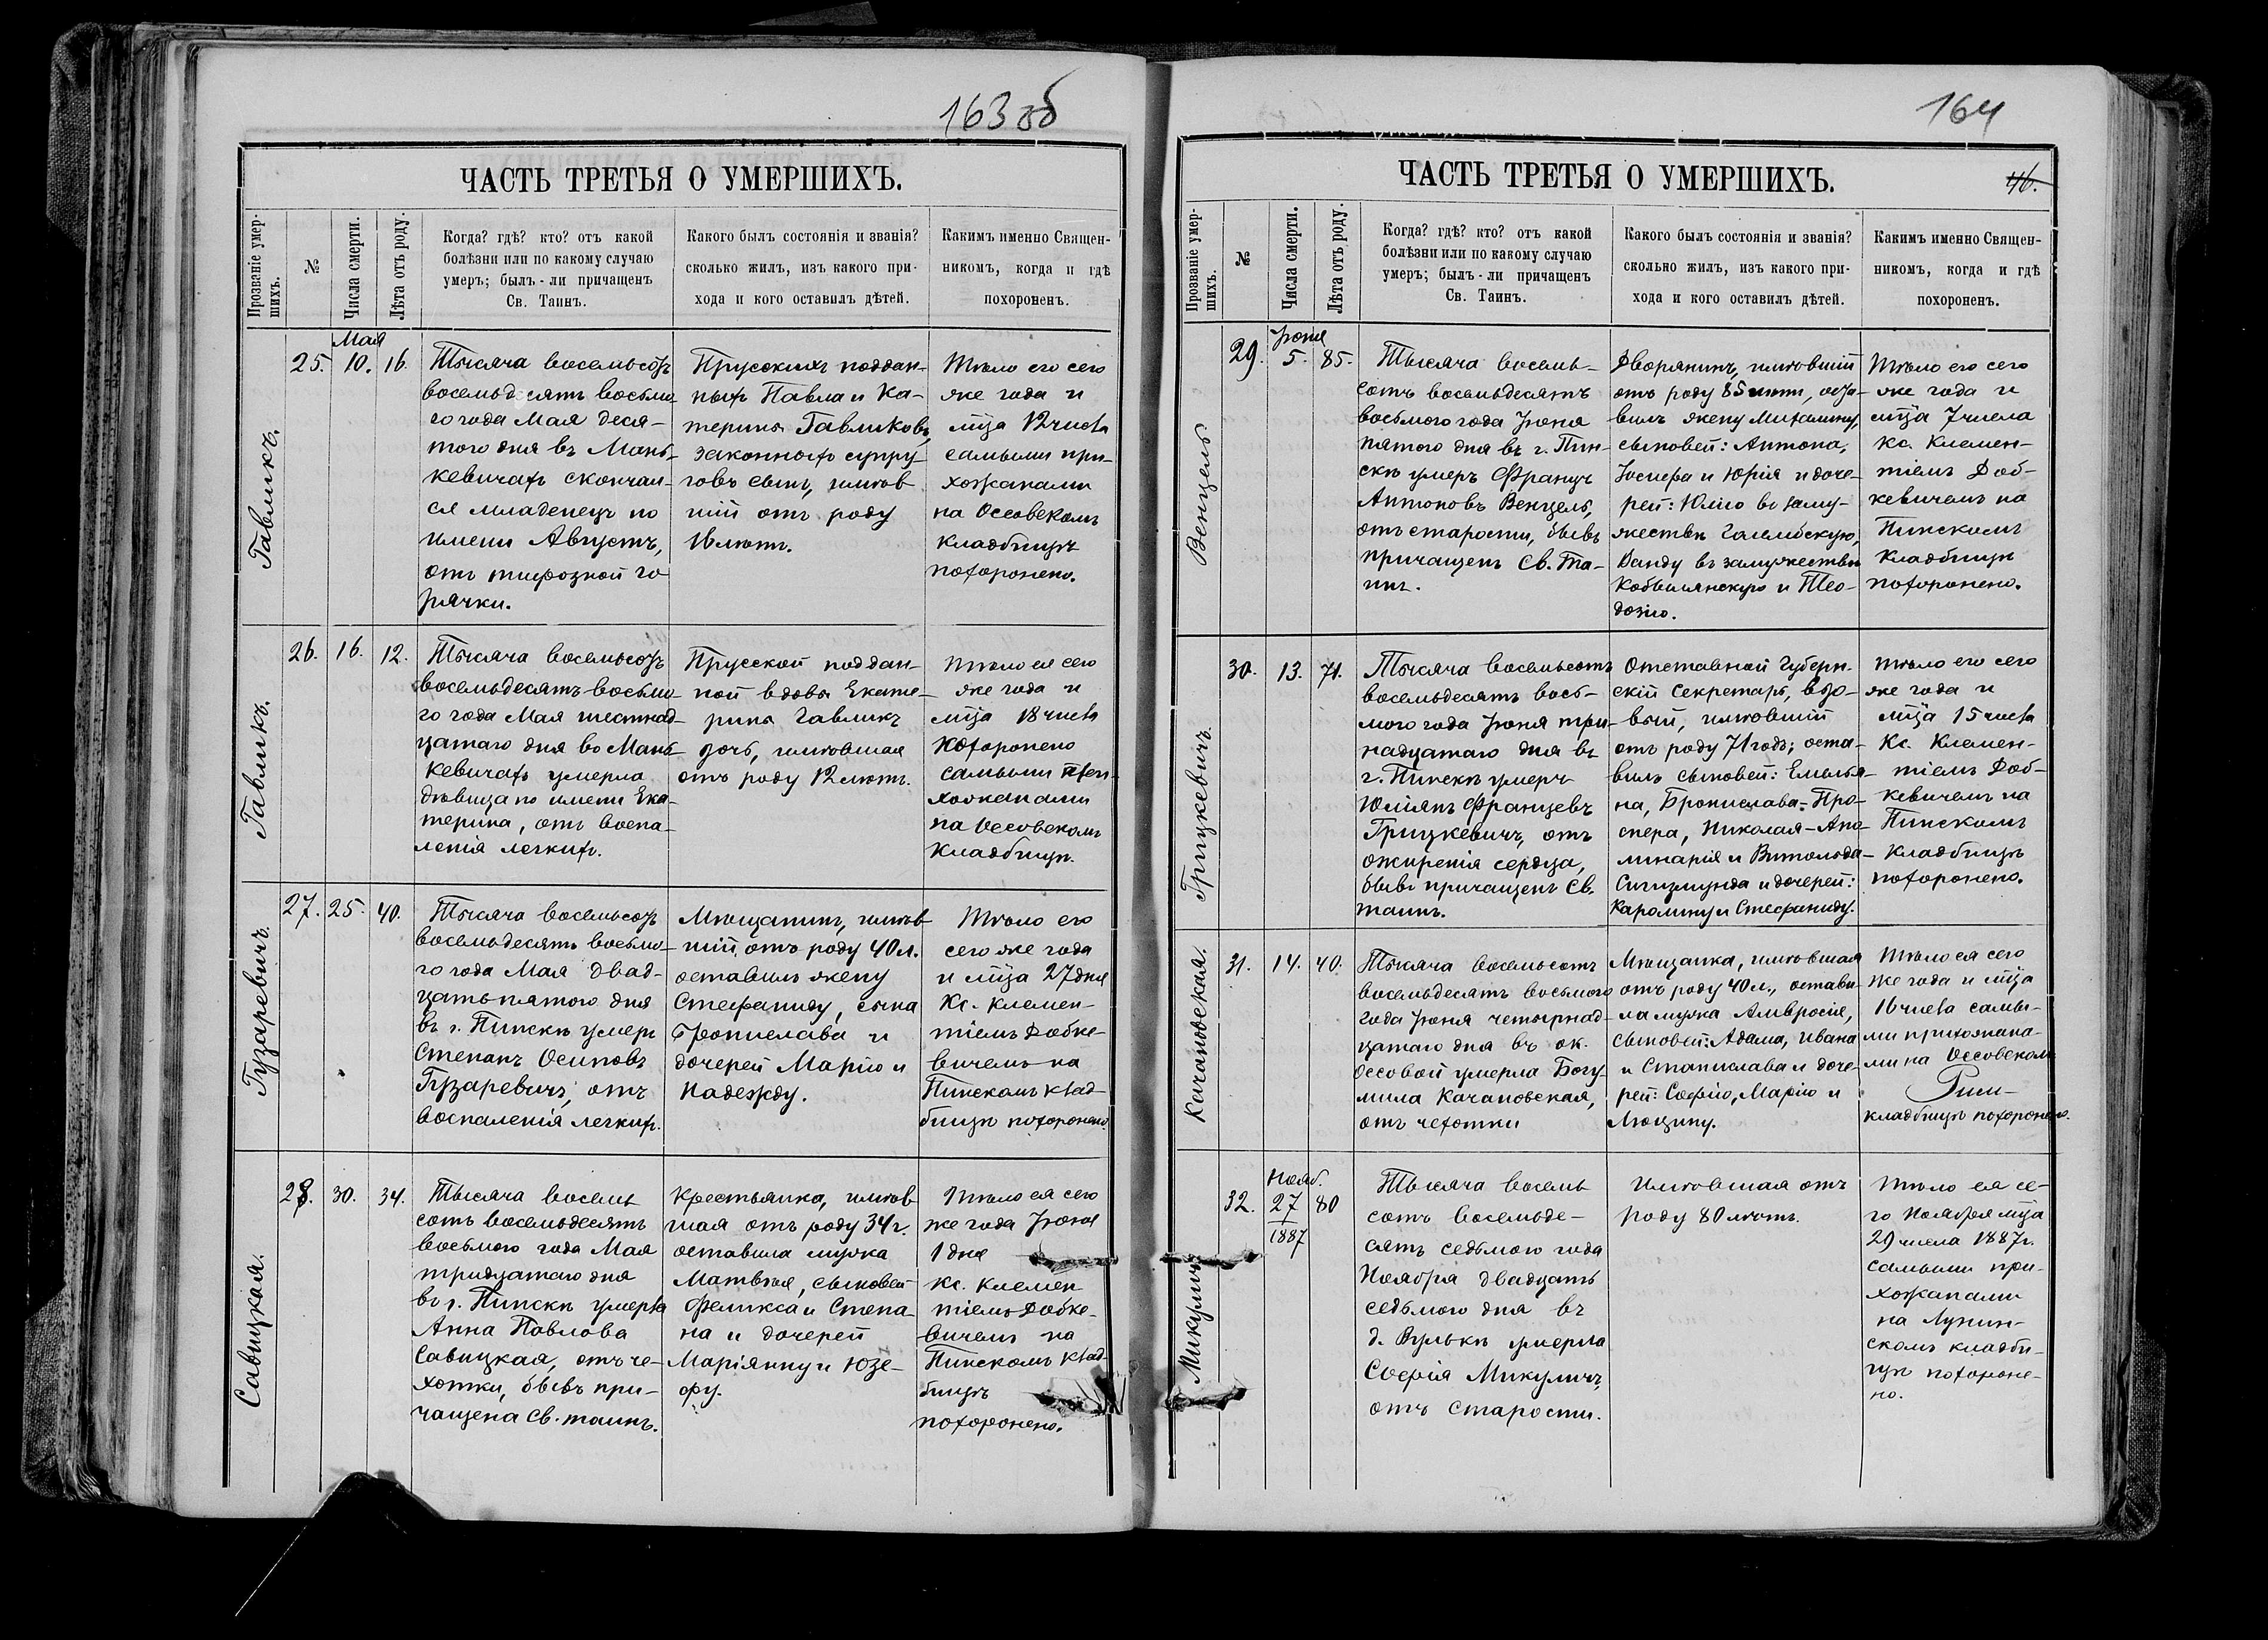 163 об
ЧАСТЬ ТРЕТЬЯ О УМЕРШИХЪ.
Прозваніе умер-
шихъ.
№
Числа смерти.
Лѣта отъ роду.
Когда? гдѣ? кто? отъ какой
болѣзни или по какому случаю
умеръ; былъ-ли причащенъ
Св. Таинъ.
Какого былъ состоянія и званія?
сколько жилъ, изъ какого при-
хода и кого оставилъ дѣтей.
Какимъ именно Священ-
никомъ, когда и гдѣ
похороненъ.
Гавликъ.
25.
Мая
10.
16.
Тысяча восемьсотъ
восемьдесятъ восьма
го года Мая деся-
того дня въ Мань-
кевичахъ скончал-
ся младенецъ по
имени Августъ,
отъ тифозной го
рячки.
Прусскихъ поддан-
ныхъ Павла и Ка-
терины Гавликовъ,
законныхъ супру-
говъ сынъ, имѣв
шій отъ роду
16 лѣтъ.
Тѣло его сего
же года и
мѣца 12 числа
самыми при-
хожанами
на Оссовскомъ
кладбищѣ
похоронено.
Гавликъ.
26.
16.
12.
Тысяча восемьсотъ
восемьдесятъ восьмо-
го года Мая шестнад-
цатаго дня во Мань-
кевичахъ умерла
дѣвица по имени Ека-
терина, отъ воспа-
ленія легкихъ.
Прусской поддан-
ной вдовы Екате-
рины Гавликъ
дочь, имѣвшая
отъ роду 12 лѣтъ.
Тѣло ея сего
же года и
мѣца 18 числа
похоронено
самыми
хожанами
на Оссовскомъ
кладбищѣ.
Гузаревичъ.
27.
25.
40.
Тысяча восемьсотъ
восемьдесятъ восьмо-
го года Мая двад-
цать пятого дня
въ г. Пинскѣ умеръ
Степанъ Осиповъ
Гузаревичъ, отъ
воспаленія легкихъ.
Мѣщанинъ, имѣв
шій отъ роду 40 л.
оставилъ жену
Стефаниду, сына
Бронислава и
дочерей Марію и
Надежду.
Тѣло его
сего же года
и мѣца 27 дня
Кс. Клемен-
тіемъ Добке-
вичемъ на
Пинскомъ клад-
бищѣ похоронено.
Савицкая.
28.
30.
34.
Тысяча восемь
сотъ восемьдесятъ
восьмого года Мая
тридцатаго дня
въ г. Пинскѣ умерла
Анна Павлова
Савицкая, отъ че-
хотки, бывъ при-
чащена Св. таинъ.
Крестьянка, имѣв
шая отъ роду 34 г.
оставила мужа
Матвѣя, сыновей
Феликса и Степа-
на и дочерей
Маріянну и Юзе-
фу.
Тѣло ея сего
же года Іюня
1 дня
Кс. Клемен
тіемъ Добке-
вичемъ на
Пинскомъ клад-
бищѣ
похоронено.
164
ЧАСТЬ ТРЕТЬЯ О УМЕРШИХЪ.
46.
Прозваніе умер-
шихъ.
№
Числа смерти.
Лѣта отъ роду.
Когда? гдѣ? кто? отъ какой
болѣзни или по какому случаю
умеръ; былъ-ли причащенъ
Св. Таинъ.
Какого былъ состоянія и званія?
сколько жилъ, изъ какого при-
хода и кого оставилъ дѣтей.
Какимъ именно Священ-
никомъ, когда и гдѣ
похороненъ.
Венцель.
29.
Іюня
5.
85.
Тысяча восемь-
сотъ восемьдесятъ
восьмого года Іюня
пятого дня въ г. Пин-
скѣ умеръ Францъ
Антоновъ Венцель,
отъ старости, бывъ
причащенъ Св. Та-
инъ.
Дворянинъ, имѣвшій
отъ роду 85 лѣтъ, оста-
вилъ жену Михалину,
сыновей: Антона,
Іосифа и Юрія и доче-
рей: Юлію въ заму-
жествѣ Галембскую,
Ванду въ замужествѣ
Кобылянскую и Тео-
дозію.
Тѣло его сего
же года и
мѣца 7 числа
Кс. Клемен-
тіемъ Доб-
кевичемъ на
Пинскомъ
кладбищѣ
похоронено.
Грицкевичъ.
30.
13.
71.
Тысяча восемьсотъ
восемьдесятъ вось-
мого года Іюня три-
надцатаго дня въ
г. Пинскѣ умеръ
Юліянъ Францевъ
Грицкевичъ, отъ
ожиренія сердца,
бывъ причащенъ Св.
таинъ.
Отставной Губерн-
скій Секретарь, вдо-
вый, имѣвшій
отъ роду 71 годъ; оста-
вилъ сыновей: Емелья-
на, Бронислава-Про-
спера, Николая-Апо-
линарія и Витольда-
Сигизмунда и дочерей:
Каролину и Стефаниду.
Тѣло его сего
же года и
мѣца 15 числа
Кс. Клемен-
тіемъ Доб-
кевичемъ на
Пинскомъ
кладбищѣ
похоронено.
Качановская.
31.
14.
40.
Тысяча восемьсотъ
восемьдесятъ восьмого
года Іюня четырнад-
цатаго дня въ ок.
Оссовой умерла Богу-
мила Качановская,
отъ чехотки
Мѣщанка, имѣвшая
отъ роду 40 л., остави-
ла мужа Амвросія,
сыновей: Адама, Ивана
и Станислава и доче-
рей: Софію, Марію и
Люцину.
Тѣло ея сего
же года и мѣца
16 числа самы-
ми прихожана-
ми на Оссовскомъ
Рим-
кладбищѣ похоронено.
Микуличъ
32.
Нояб.
27
1887
80
Тысяча восемь
сотъ восемьде-
сятъ седьмого года
Ноября двадцать
седьмого дня въ
д. Вулькѣ умерла
Софія Микуличъ,
отъ старости.
Имѣвшая отъ
роду 80 лѣтъ.
Тѣло ея се-
го Ноября мѣца
29 числа 1887 г.
самыми при-
хожанами
на Лунин-
скомъ кладби-
щѣ похороне-
но.